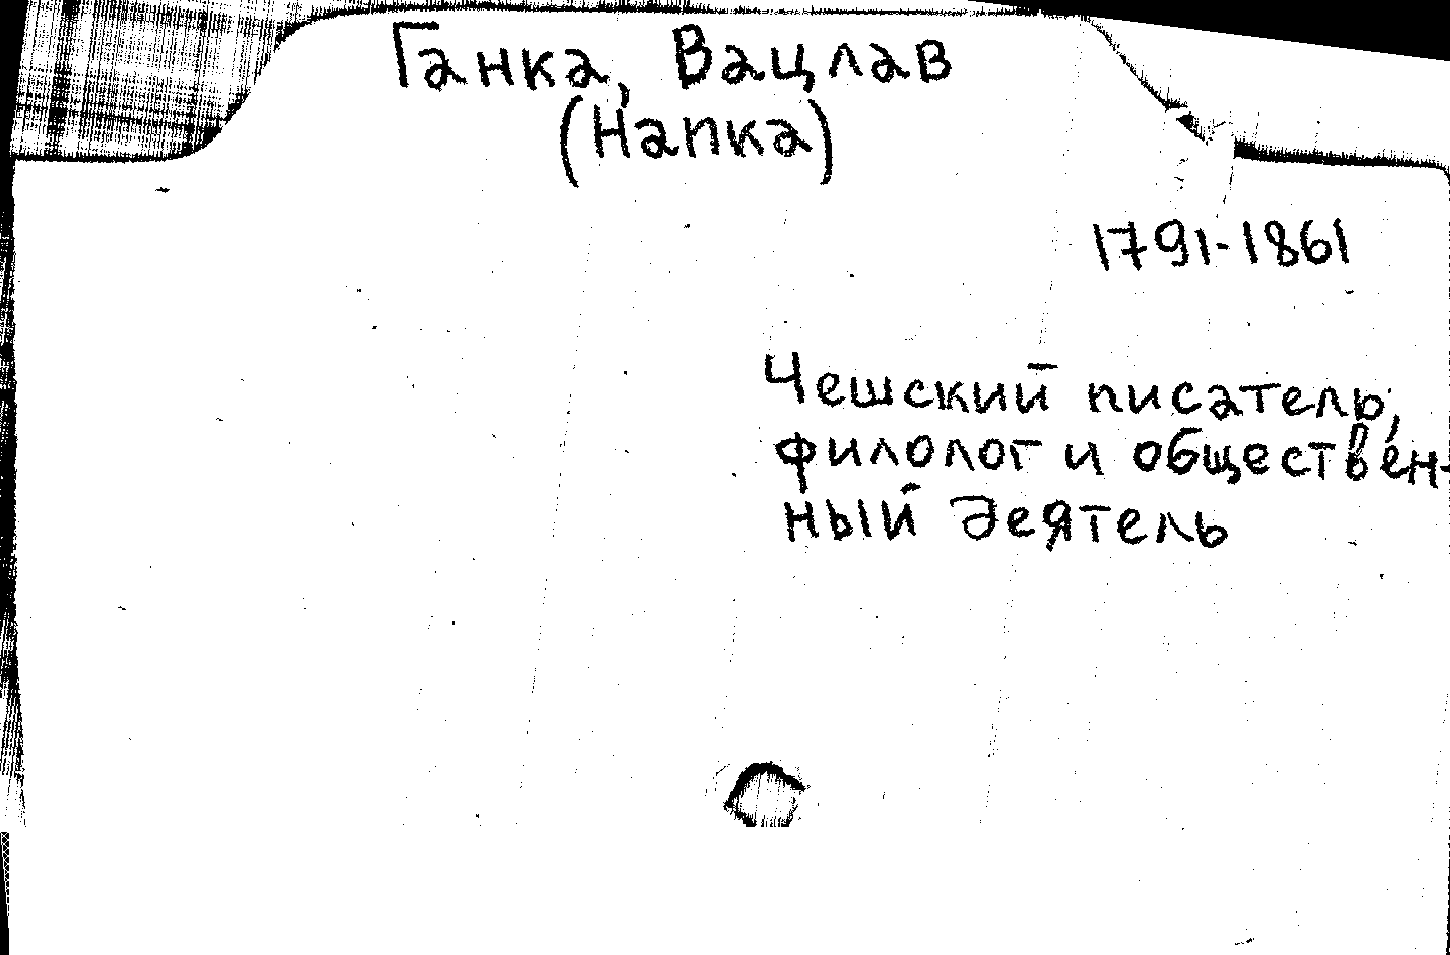 Ганка, Вацлав
(Hanка)
1791-1861
Чешский писатель,
филолог и обществен-
ный деятель